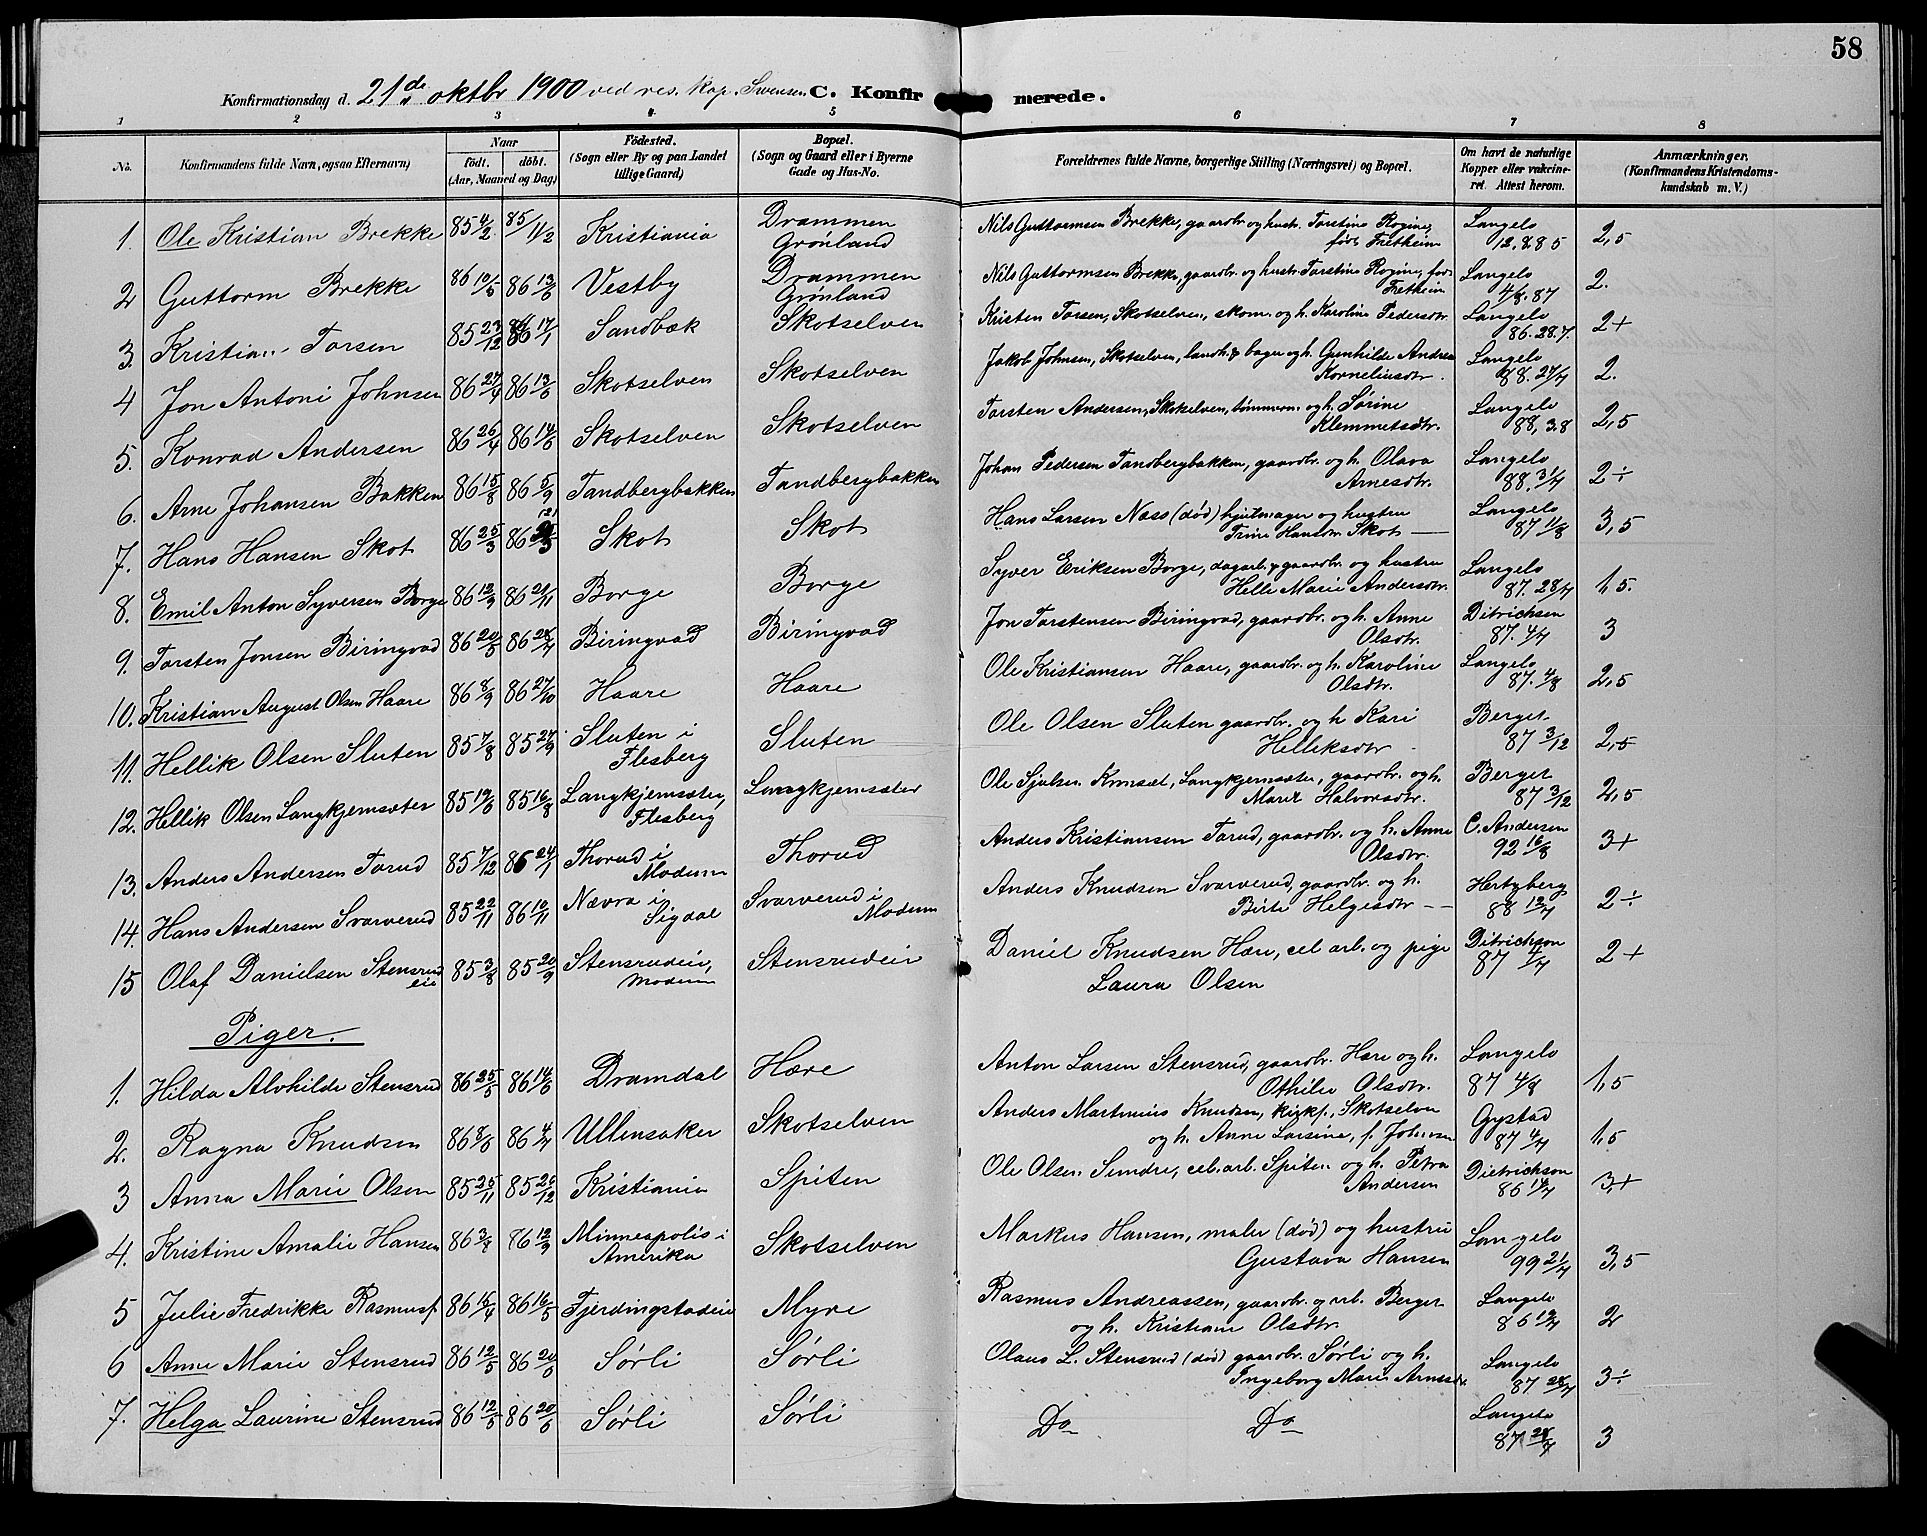 58
Konfirmationsdag d. 21de oktbr 1900 ved res. kap. Svensen. C. Konfirmerede.
1 2 3 4 5 6 7 8
No. Konfirmandens fulde Navn, ogsaa Efternavn) Naar födt. döbt. (Aar, Maaned og Dag) Födested. (Sogn eller By og paa Landet tillige Gaard) Bopæl. (Sogn og Gaard eller i Byerne Gade og Hus-No. Forældrenes fulde Navne, borgerlige Stilling (Næringsvei) og Bopæl. Om havt de naturlige Kopper eller vakcineret. Attest herom. Anmærkninger. (Konfirmandens Kristendomskundskab m. V.)
1. Ole Kristian Brekke 85 4/2 85 11/2 Kristiania Drammen Grönland Nils Guttormsen Brekke, gaardbr. og hustr. Torstine Rogine, föd Fretheim Langelo 12.8.85 2,5
2 Guttorm Brekke 86 10/5 86 13/6 Vestby Drammen Grønland Nils Guttormsen Brekke, gaardbr. og hustr. Torstine Rogine, föd Fretheim Langelo 4/8. 87 2.
3. Kristian Torsen 85 23/12 86 17/1 Sandbæk Skotselven Kristen Torsen, Skotselven, skom. og h. Karoline Pedersdtr. Langelo 86. 28.7. 2+
4 Jon Antoni Johnsen 86 27/4 86 13/6 Skotselven Skotselven Jakob Johnsen, Skotselven, landh. & bager og h. Gunhilde Andrea Korneliusdtr. Langelo 88. 27/7 2.
5. Konrad Andersen 86 26/4 86 14/6 Skotselven Skotselven Torsten Andersen, Skotselven, tömmerm. og h. Sörine Klemmetsdtr. Langelo 88, 3.8 2,5
6. Arne Johansen Bakken 86 15/8 86 5/9 Tandbergbakken Tandbergbakken Johan Pedersen Tandbergbakken, gaardbr. og h. Olava Arnesdtr. Langelo 88. 31/7 2÷
7. Hans Hansen Skot 86 25/3 86 Skot Skot Hans Larsen Næss (död) hjulmager og hustru Trine Hansdtr. Skot — Langelo 87 11/8 3,5
8. Emil Anton Syversen Borge 86 12/9 86 21/11 Borge Borge Syver Eriksen Borge, dagarb. & gaardbr. og hustru Helle Marie Andersdtr. Langelo 87. 28/7 1,5.
9. Torsten Jonsen Biringvad 86 20/5 86 28/7 Biringvad Biringvad Jon Torstensen Biringvad, gaardbr. og h. Anne Olsdtr. Ditrichsen 87. 4/7 3
10. Kristian August Olsen Haare 86 8/9 86 27/10 Haare Haare Ole Kristiansen Haare, gaardbr. og h. Karoline Olsdtr. Langelo 87. 4/8 2,5
11. Hellik Olsen Sluten 85 7/8 85 27/9 Sluten i Flesberg Sluten Ole Olsen Sluten gaardbr. og h Kari Helleksdtr. Berget 87 3/12 2,5
12. Hellik Olsen Langkjemsæter 85 19/6 85 16/8 Langkjemsæter, Flesberg Langkjemsæter Ole Sjulsen, Langkjemsæter, gaardbr. og h. Marit Halvorsdtr. Berget 87 3/12 2,5
13. Anders Andersen Torud 85 7/12 86 24/1 Thorud i Modum Thorud Anders Kristiansen Torud, gaardbr. og h. Anne Olsdtr. C. Andersen 92 16/8 3+
14. Hans Andersen Svarverud 85 22/11 86 10/11 Nævra i Sigdal Svarverud i Modum Anders Knudsen Svarverud, gaardbr. og h. Birte Helgesdtr — Hertzberg 88 12/7 2÷
15 Olaf Danielsen Stensrud eie 85 3/8 85 20/9 Stensrudeie, Modum Stensrudeie Daniel Knudsen Hære, cel. arb. og pige Laura Olsen Ditrichson 87 4/7 2+
Piger.
1. Hilda Alvhilde Stensrud 86 25/5 86 14/6 Dramdal Hære Anton Larsen Stensrud, gaardbr. Hære og h. Othilie Olsdtr. Langelo 87 4/8 1,5
2. Ragna Knudsen 86 8/5 86 4/7 Ullensaker Skotselven Anders Martinius Knudsen, Skotselven og h. Anne Larsine, f. Johnsen Gystad 87 4/7 1,5
3 Anna Marie Olsen 85 25/11 85 26/12 Kristiania Spiten Ole Olsen Sundre, cel. arb. Spiten og h. Petra Andersen Dietrichson 86 14/7 3+
4. Kristine Amalie Hansen 86 3/8 86 12/9 Minneapolis i Amerika Skotselven Markus Hansen, maler (död) og hustru Gustava Hansen Langelo 99 21/7 3,5
5 Julie Fredrikke Rasmusf 86 16/4 86 16/5 Fjerdingstadeie Myre Rasmus Andreassen, gaardbr. og arb. Berget og h. Kristiane Olsdtr. Langelo 86 12/7 2
6 Anne Marie Stensrud 86 12/5 86 20/6 Sørli Sørli Olaus L. Stensrud (død) gaardbr. Sørli og h. Ingeborg Marie Arnesdtr. Langelo 87 28/7 3÷
7. Helga Laurine Stensrud 86 12/5 86 20/6 Sørli Sørli Do Do Langelo 87 28/7 3